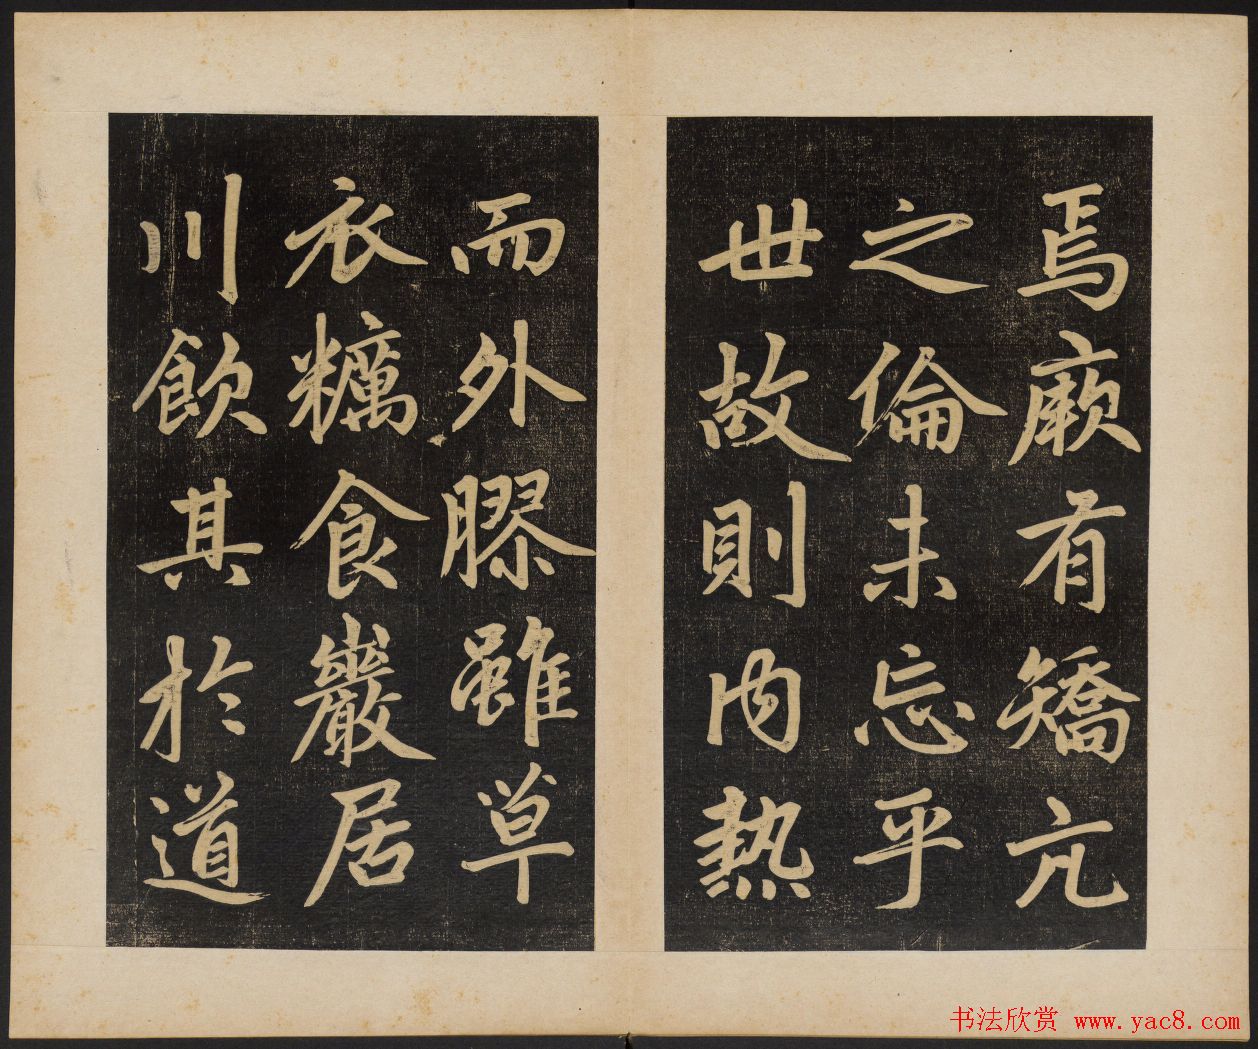 焉厥有矯亢
之倫未忘乎
世故則内熱
而外膠雖草
衣糲食巖居
川飲其於道
书法欣赏 www.yac8.com